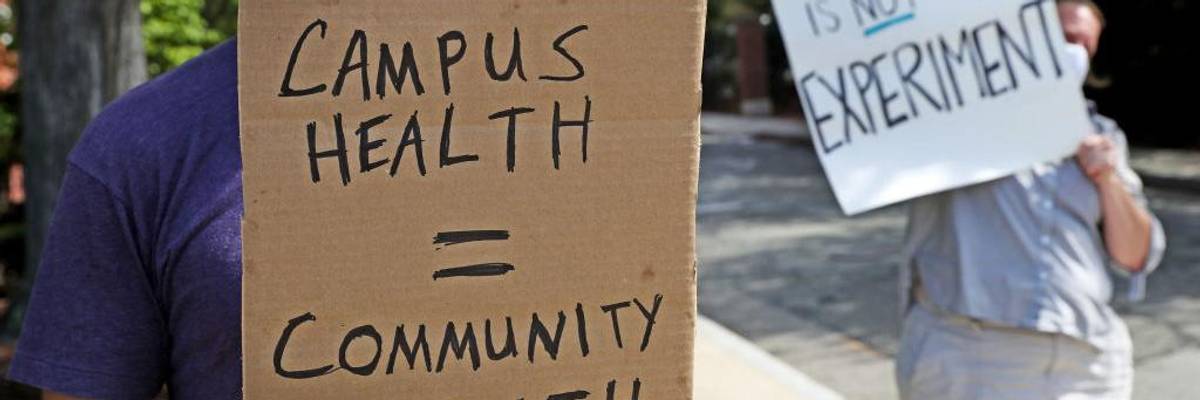 CAMPUS
HEALTH
=
COMMUNITY
IS NOT
EXPERIMENT